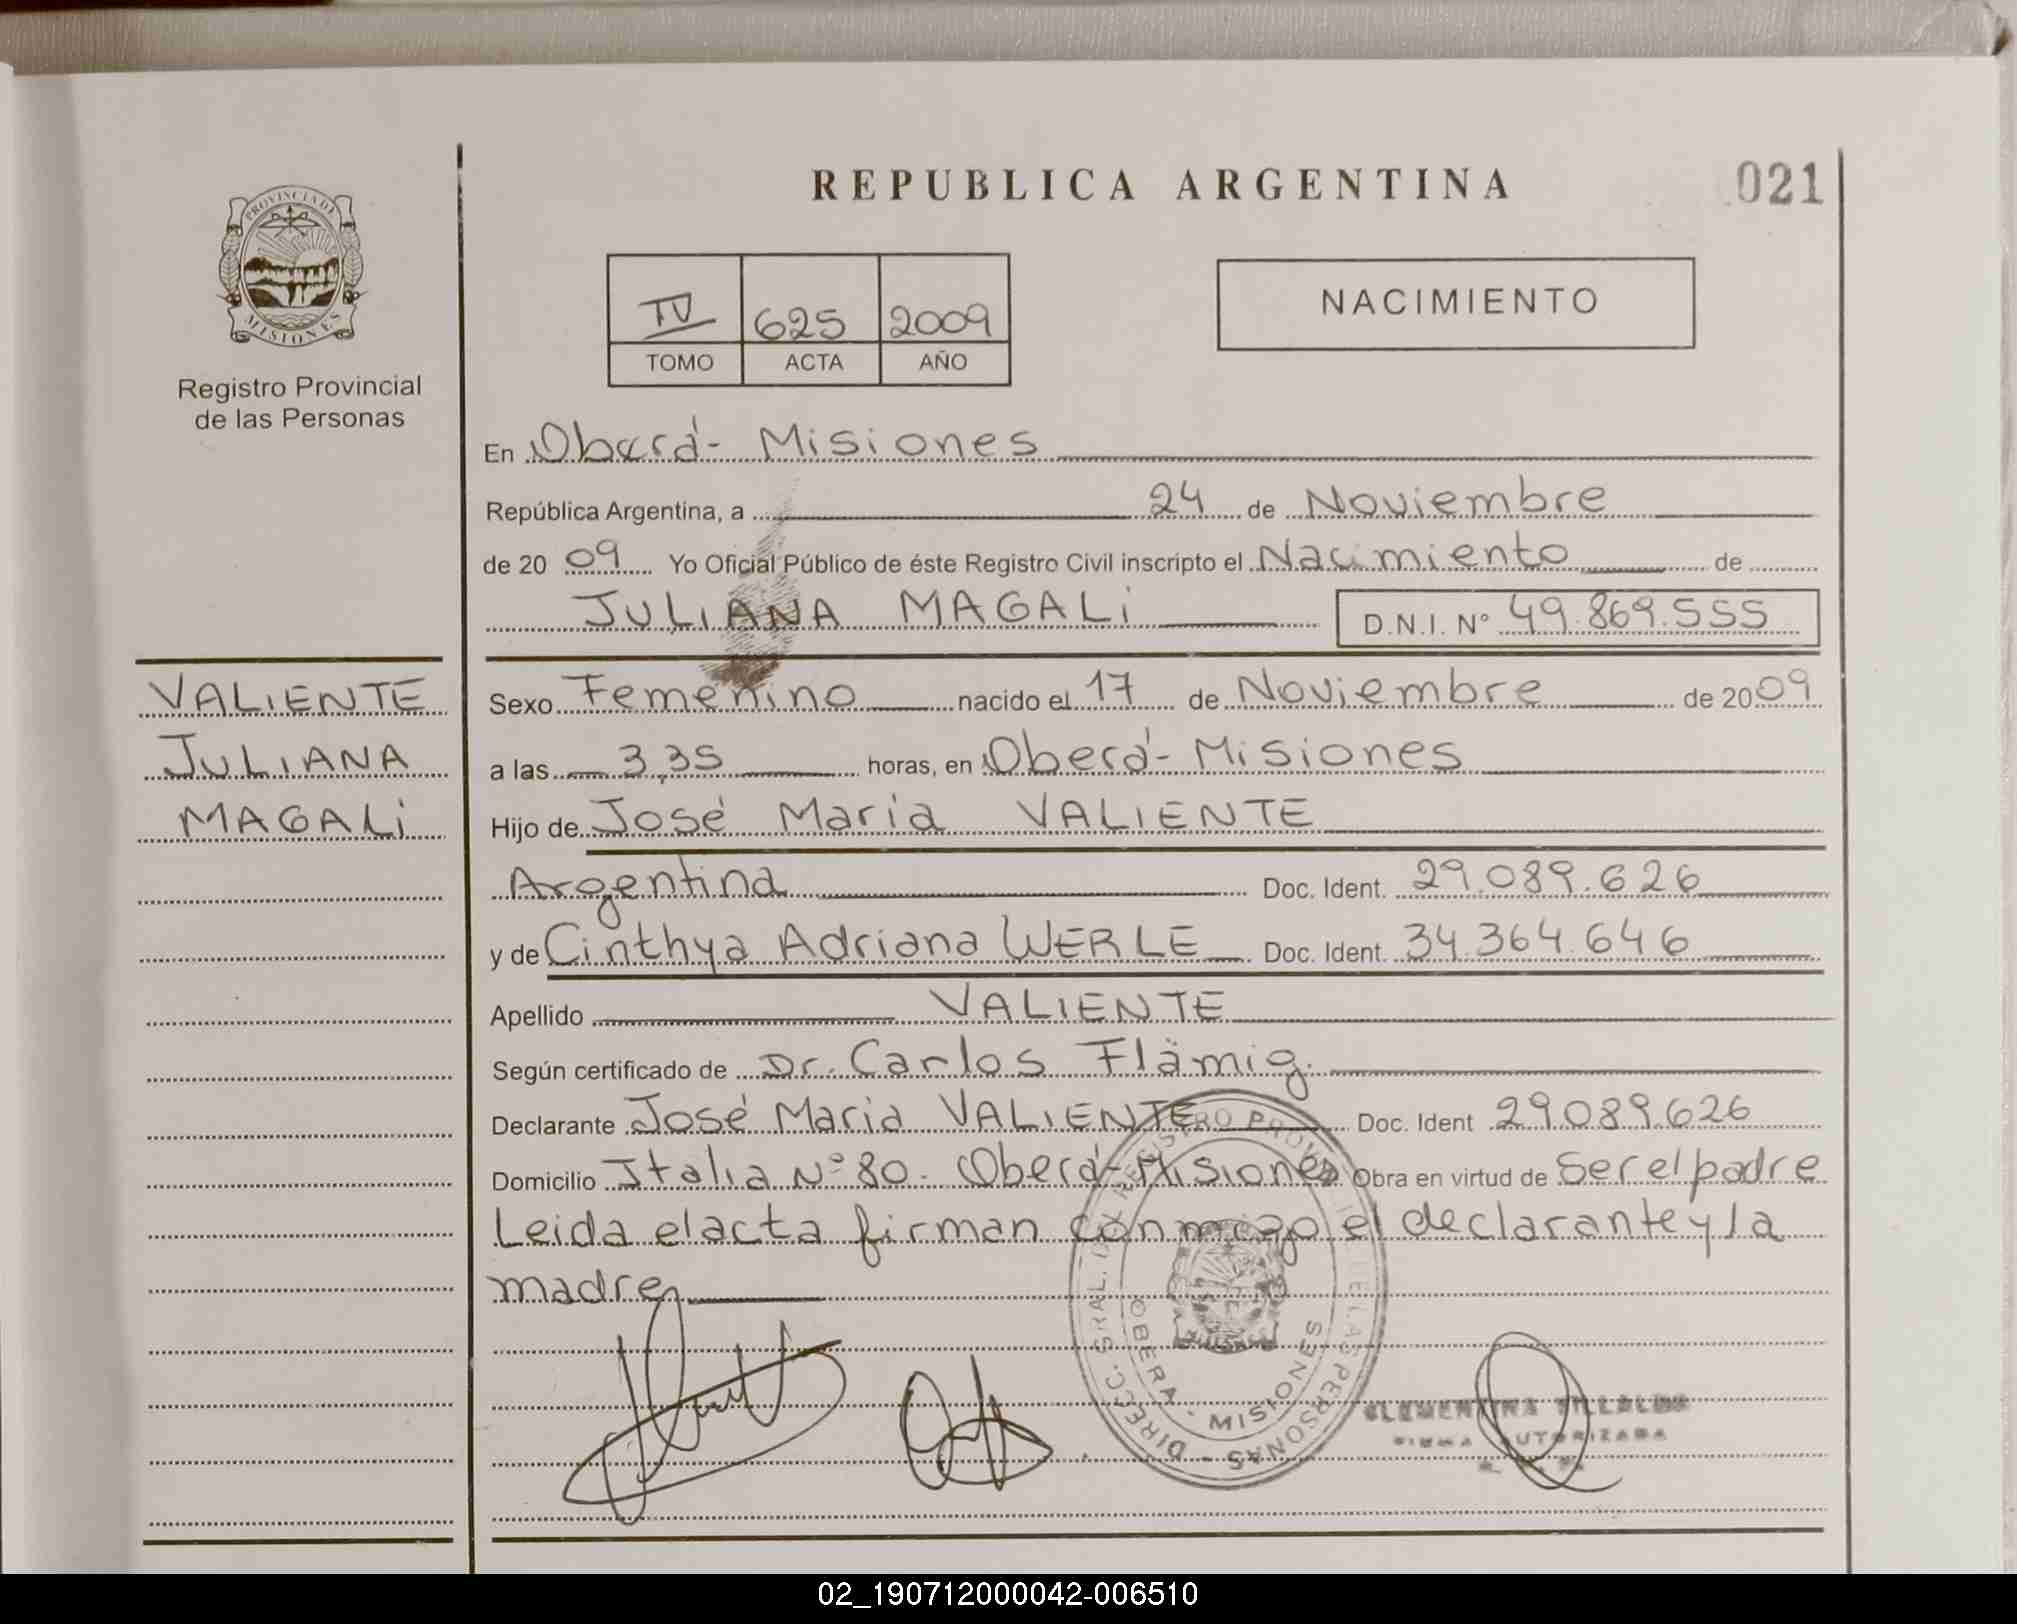 REPUBLICA ARGENTINA
021
PROVINCIA DE
MISIONES
Registro Provincial
de las Personas
IV 625 2009
TOMO ACTA AÑO
NACIMIENTO
En Oberá - Misiones
República Argentina, a 24 de Noviembre
de 2009 Yo Oficial Público de éste Registro Civil inscripto el Nacimiento de
JULIANA MAGALi D.N.I. Nº 49.869.555
VALIENTE
JULIANA
MAGALi
Sexo Femenino nacido el 17 de Noviembre de 2009
a las 3,35 horas, en Oberá - Misiones
Hijo de José Maria VALIENTE
Argentina Doc. Ident. 29.089.626
y de Cinthya Adriana WERLE Doc. Ident. 34.364.646
Apellido VALIENTE
Según certificado de Dr. Carlos Flämig.
Declarante José Maria VALIENTE Doc. Ident 29.089.626
Domicilio Italia Nº 80 - Oberá - Misiones Obra en virtud de Ser el padre
Leida el acta firman conmigo el declarante y la
madre
DIRECC. GRAL. DEL REGISTRO PROVINCIAL DE LAS PERSONAS
OBERA - MISIONES
CLEMENTINA
FIRMA AUTORIZADA
02_190712000042-006510